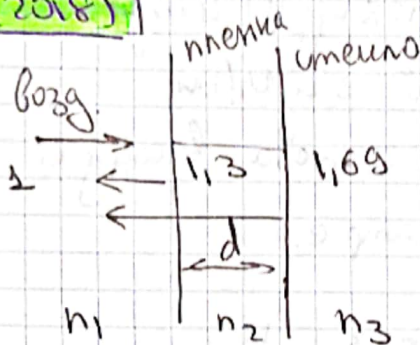 2018)
пленка
стекло
возд.
1
1,3
1,69
d
n₁
n₂
n₃